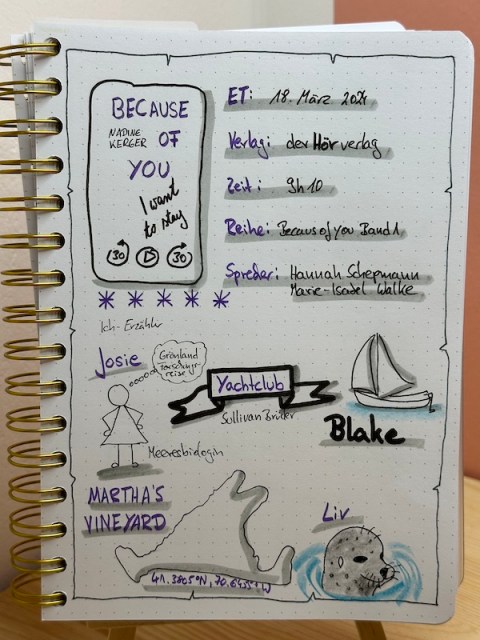 BECAUSE
NADINE
KERGER
OF
YOU
I want
to stay
30 30
ET: 18. März 2024
Verlag: der Hörverlag
Zeit: 9h 10
Reihe: Becaus of you Band 1
Sprecher: Hannah Schepmann
Marie-Isabel Walke
Ich-Erzähler
Josie
Grönland
Forschungs-
reise
Yachtclub
Sullivan Brüder
Blake
Meeresbiologin
MARTHA'S
VINEYARD
Liv
41.3805°N, 70.6455°W